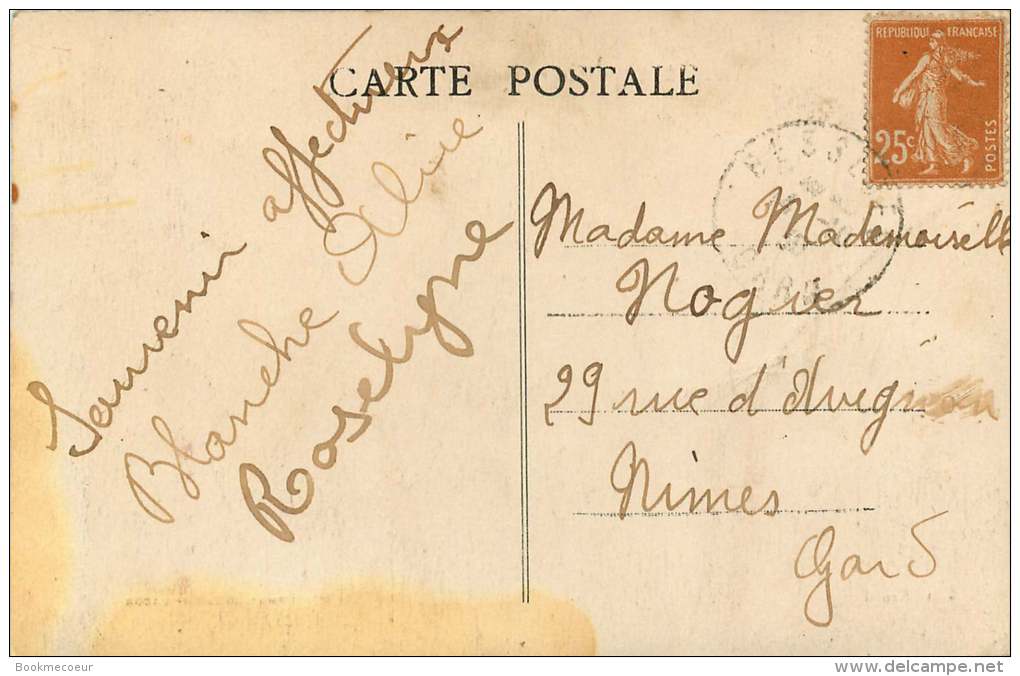 CARTE POSTALE
REPUBLIQUE FRANÇAISE
25c
POSTES
Souvenir affectueux
Blanche Aline
Roselyne
Madame Mademoiselle
Nogier
29 rue d'Avignon
Nimes
Gard
Bookmecoeur
delcampe.net